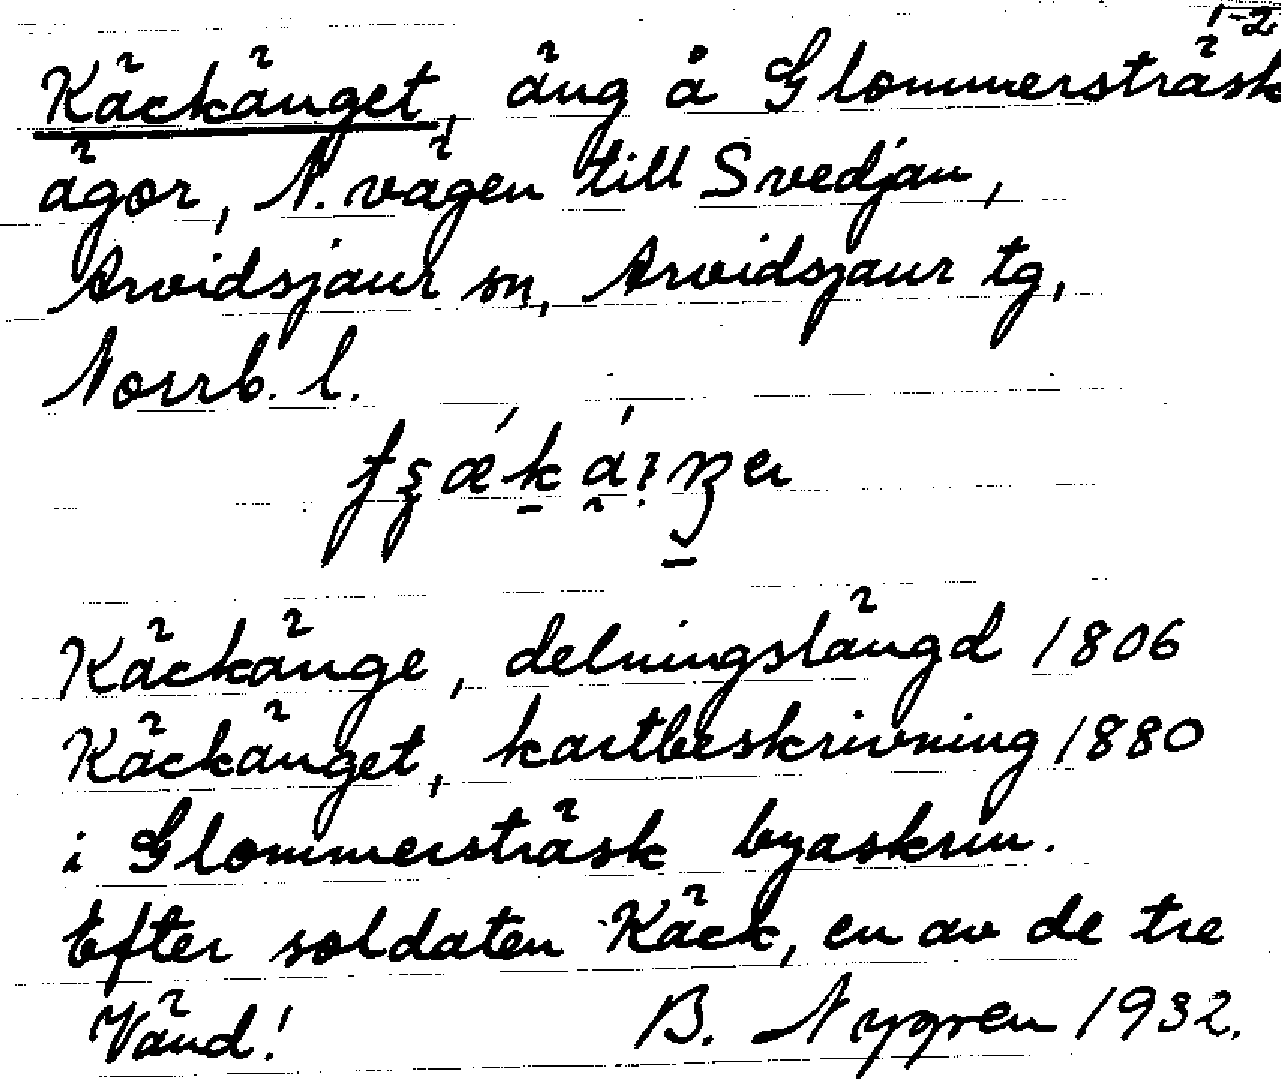 1-2
Käckänget, äng å Glommersträsk
ägor, N. vägen till Svedjan,
Arvidsjaur sn, Arvidsjaur tg,
Norrb. l.
Käckänge, delningslängd 1806
Käckänget, kartbeskrivning 1880
i Glommersträsk byaskrin.
Efter soldaten Käck, en av de tre
Vänd! B. Nygren 1932.